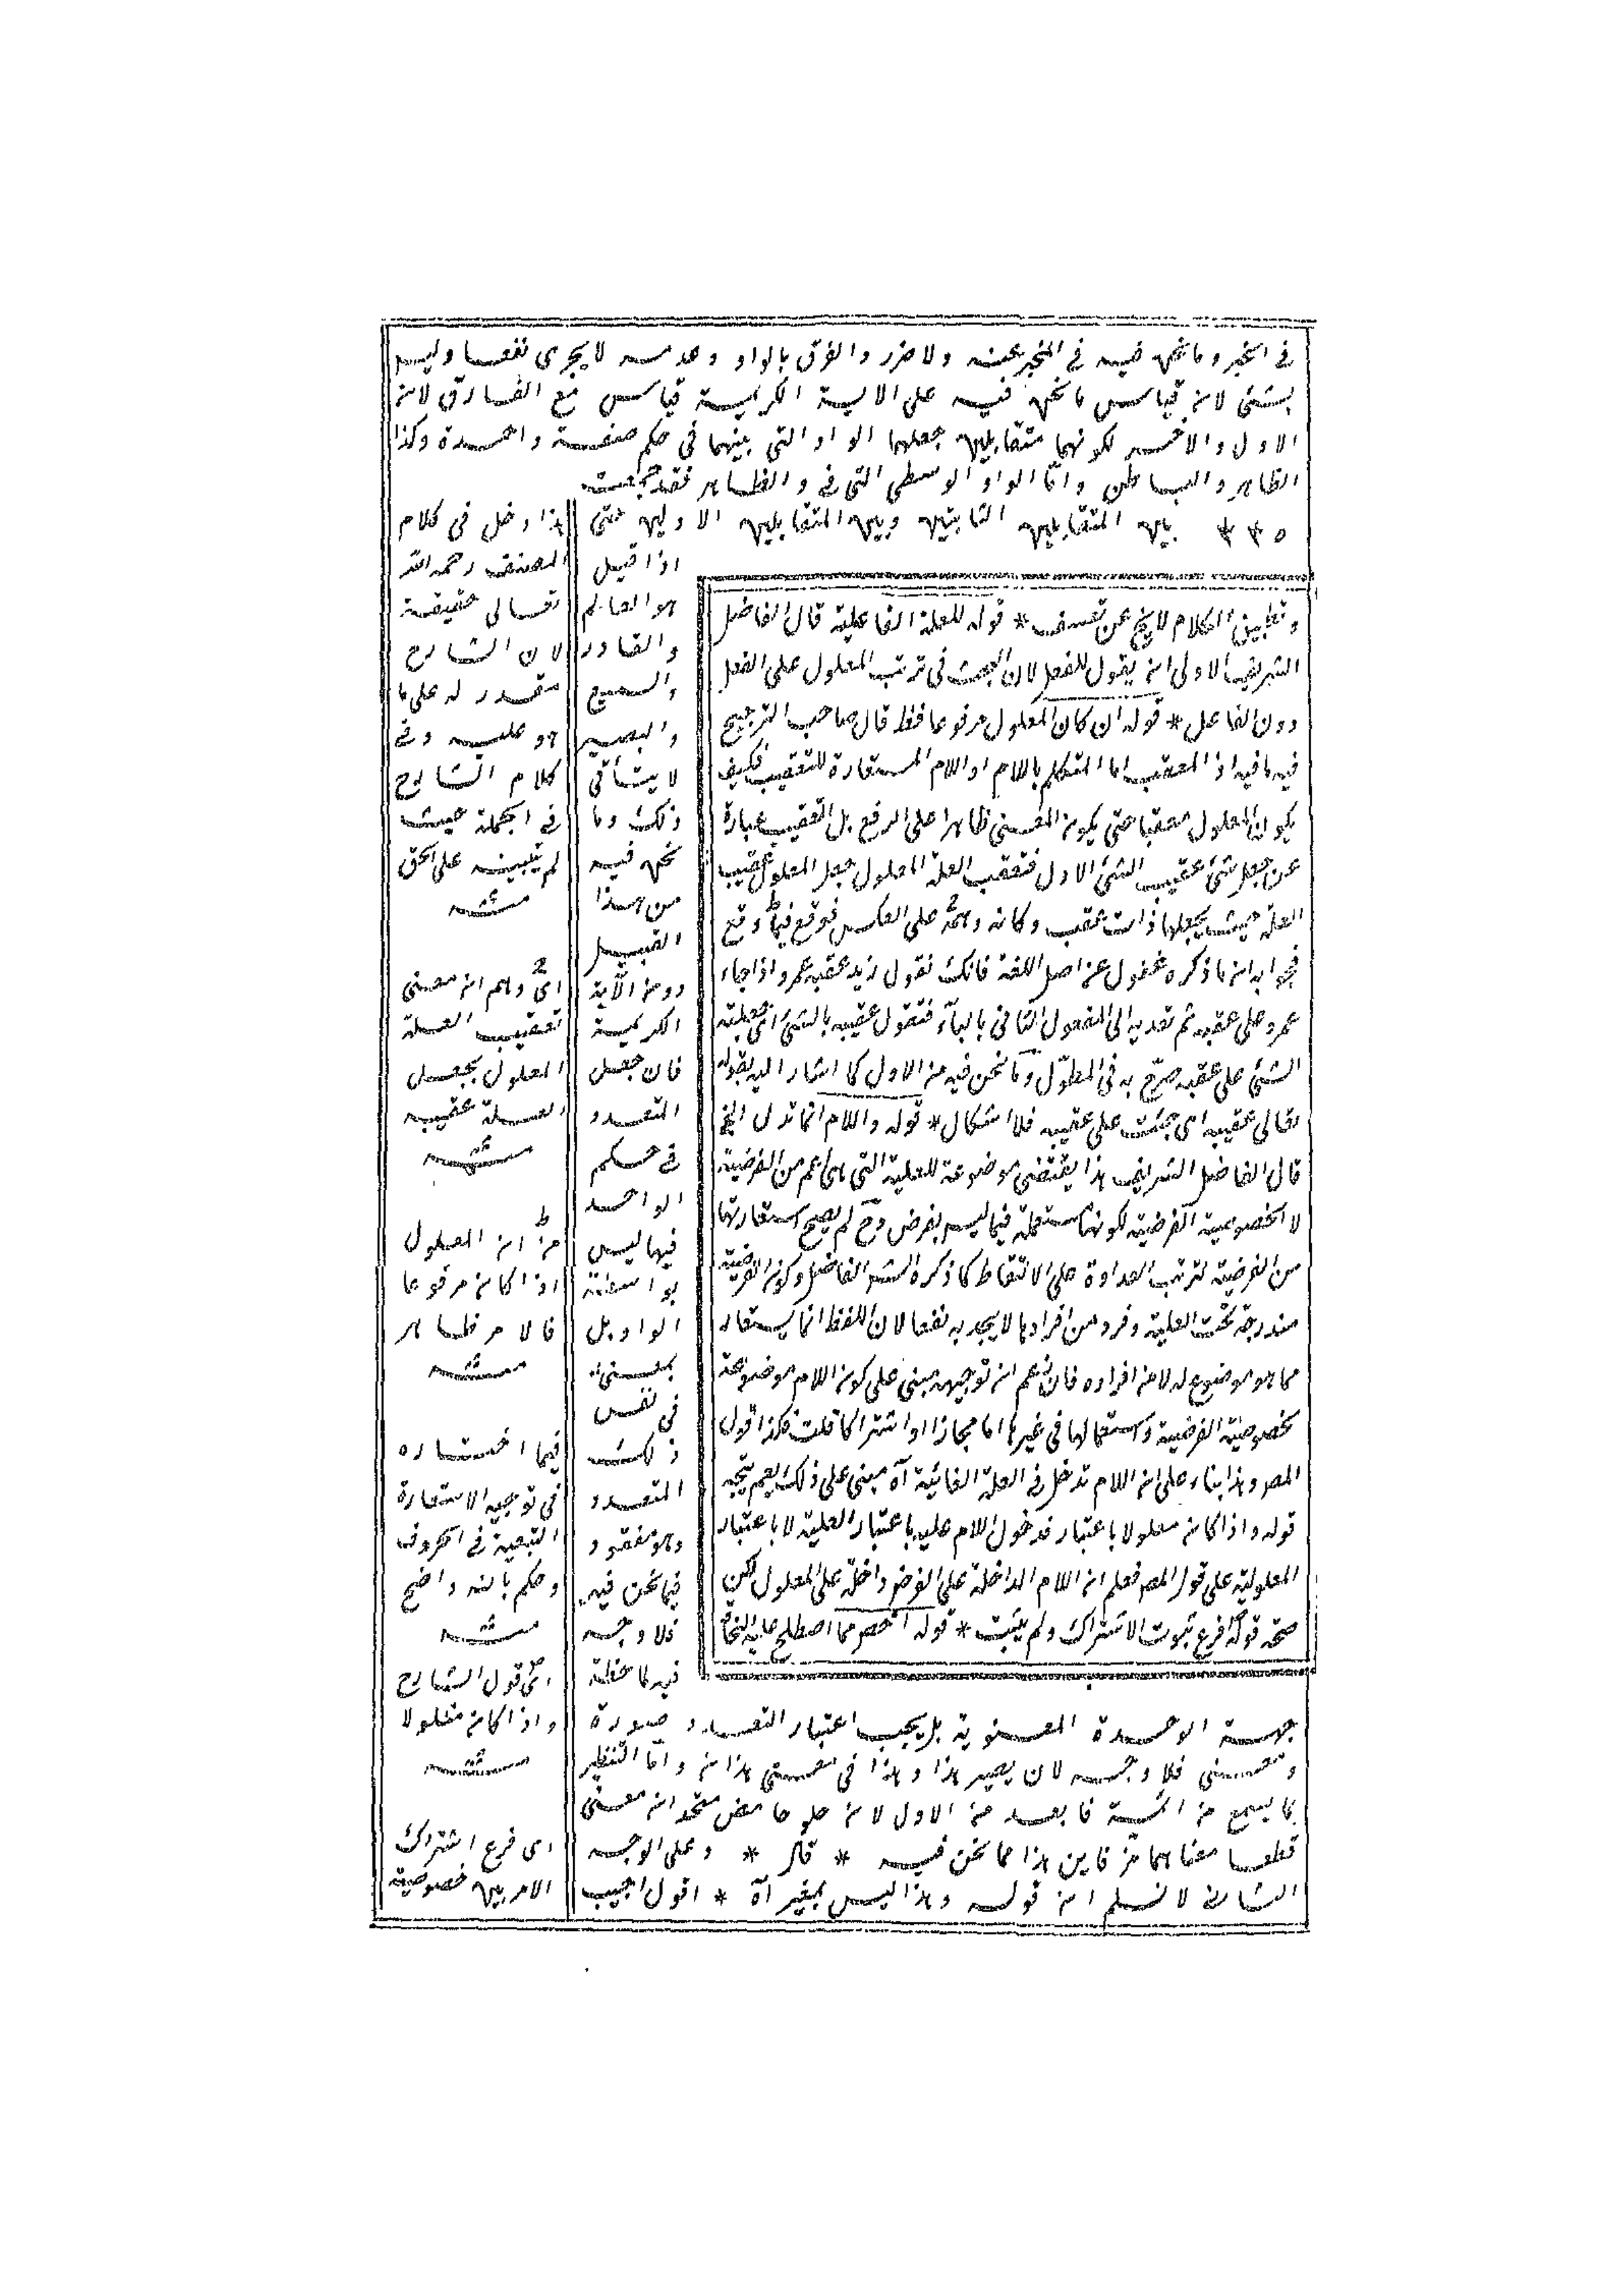 في الخبر وما نحن فيه في المخبر عنه ولا ضرر والفرق بالواو وعدمه لا يجرى نفعا وليس
بشئ لان قياس ما نحن فيه على الاية الكريمة قياس مع الفارق لان
الاول والاخر لكونهما متقابلين جعلهما الواو التى بينهما فى حكم صفة واحدة وكذا
الظاهر والباطن واما الواو الوسطى التى في والظاهر فقد جمعت
بين المتقابلين الثابتين وبين المتقابلين الاولين حتى
اذا قيل
هو العالم
والقادر
والسميع
والبصير
لا يتأتى
ذلك وما
نحن فيه
من هذا
القبيل
دون الآية
الكريمة
فان جعل
التعدد
في حكم
الواحد
فيها ليس
بواسطة
الواو بل
بمعنى
فى نفس
ذلك
المتعدد
وهو مفقود
فيما نحن فيه
فلا وجه
فيه لملاحظة
جهة الوحدة المعنوية بل يجب اعتبار التعدد صورة
ومعنى فلا وجه لان يصير هذا وهذا فى معنى هذان واما التنظير
بما يسمع من فابعد من الاول لان حلو حامض متحدان معنى
قطعا معناهما مز فاين هذا مما نحن فيه * قال * وعلى الوجه
الثانى لا نسلم ان قوله وهذا ليس بمغير آه * اقول اجيب
وتطبيق الكلام لا يخ عن تعسف * قوله للعلة الفاعلية قال الفاضل
الشريف الاولى ان يقول للفعل لان البحث فى ترتب المعلول على الفعل
دون الفاعل * قوله ان كان المعلول مرفوعا فظ قال صاحب الترجيح
فيه ما فيه اذ المعقب اما المتكلم باللام او اللام المستعارة للتعقيب فكيف
يكون المعلول معقبا حتى يكون المعنى ظاهرا على الرفع بل التعقيب عبارة
عن جعل شئ عقيب الشئ الاول فتعقب العلة المعلول جعل المعلول عقيب
العلة حيث يجعلها ذات عقب وكانه وهمه على العكس فوقع فيما وقع
فجوابه ان ما ذكره غفول عن اصل اللغة فانك تقول زيد عقبه عمرو اذا جاء
عمرو على عقبه ثم تعديه الى المفعول الثانى بالباء فتقول عقبه بالشئ اى جعلته
الشئ على عقبه صرح به فى المطول وما نحن فيه من الاول كما اشار اليه بقوله
يقال عقبه اى جئت على عقبه فلا اشكال * قوله واللام انما تدل الخ
قال الفاضل الشريف هذا يقتضى موضوعة للعلية التى هى اعم من الغرضية
لا لخصوصية الغرضية لكونها مستعملة فيما ليس بغرض وح لم يصح استعارتها
من الغرضية لترتب العداوة على الالتقاط كما ذكره الشر الفاضل وكون الغرضية
مندرجة تحت العلية وفرد من افرادها لا يجديه نفعا لان اللفظ انما يستعار
مما هو موضوع له لا من افراده فان زعم ان توجيهه مبنى على كون اللام موضوعة
لخصوصية الغرضية واستعمالها فى غيرها اما مجازا او اشتراكا قلت فكذا قول
المص وهذا بناء على ان اللام تدخل في العلة الغائية آه مبنى على ذلك
قوله واذا كان معلولا باعتبار فدخول اللام عليه باعتبار العلية لا باعتبار
المعلولية على قول المص فعلم ان اللام الداخلة على الغرض داخلة على المعلول لكن
صحة قوله فرع ثبوت الاشتراك ولم يثبت * قوله اخص مما اصطلح عليه النحاة
هذا دخل فى كلام
المصنف رحمه الله
تعالى حقيقة
لان الشارح
مقدر له على ما
هو عليه وفي
كلام الشارح
في الجملة حيث
لم يتبينه على الحق
منه
اى وهم ان معنى
تعقيب العلة
المعلول بجعل
العلة عقيبه
منه
من ان المعلول
اذا كان مرفوعا
فالامر ظاهر
منه
فيما اختاره
فى توجيه الاستعارة
التبعية في الحروف
وحكم بانه واضح
منه
اى قول الشارح
واذا كان معلولا
منه
اى فرع اشتراك
الامر بين خصوصية